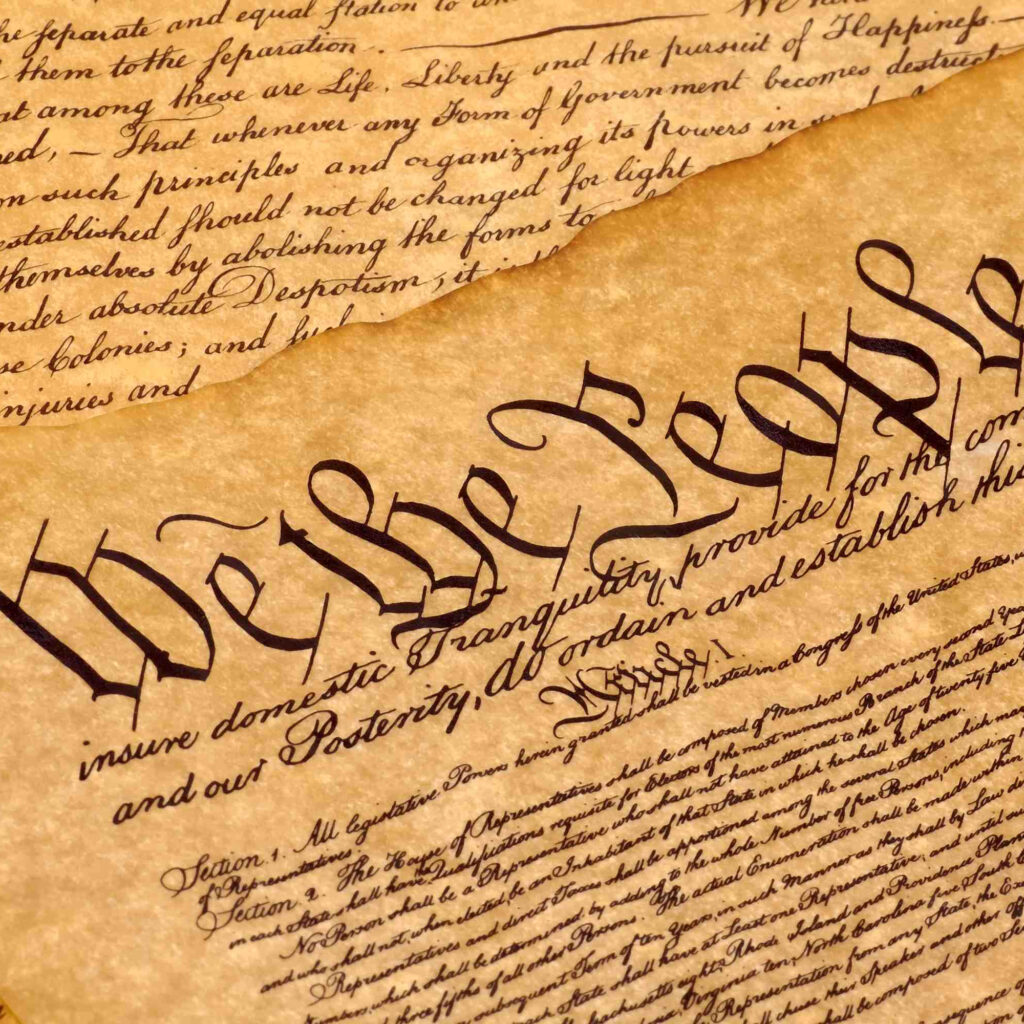 he separate and equal station to
them to the separation. We
at among these are Life, Liberty and the pursuit of Happiness.—
ed, — That whenever any Form of Government becomes destruct
on such principles and organizing its powers in
established should not be changed for light
themselves by abolishing the forms to
nder absolute Despotism, it
se Colonies; and such
injuries and
We the People
insure domestic Tranquility, provide for the com
and our Posterity, do ordain and establish this
Article. I.
Section. 1. All legislative Powers herein granted shall be vested in a Congress of the United States,
of Representatives.
Section. 2. The House of Representatives shall be composed of Members chosen every second Year
in each State shall have the Qualifications requisite for Electors of the most numerous Branch of the State
No Person shall be a Representative who shall not have attained to the Age of twenty five
and who shall not, when elected, be an Inhabitant of that State in which he shall be chosen.
Representatives and direct Taxes shall be apportioned among the several States which may
Numbers, which shall be determined by adding to the whole Number of free Persons, including
three fifths of all other Persons. The actual Enumeration shall be made within
subsequent Term of ten Years, in such Manner as they shall by Law
State shall have at Least one Representative; and until
eight, Rhode Island and Providence Plan
Virginia ten, North Carolina five, South
Representation from any State, the Ex
shall chuse their Speaker and other
shall be composed of two Sen